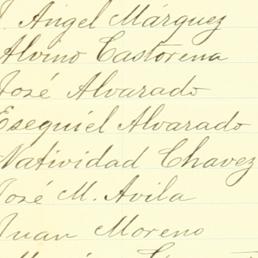 J. Angel Márquez
Alvino Castorena
José Alvarado
Esequiel Alvarado
Natividad Chavez
José M. Avila
Juan Moreno